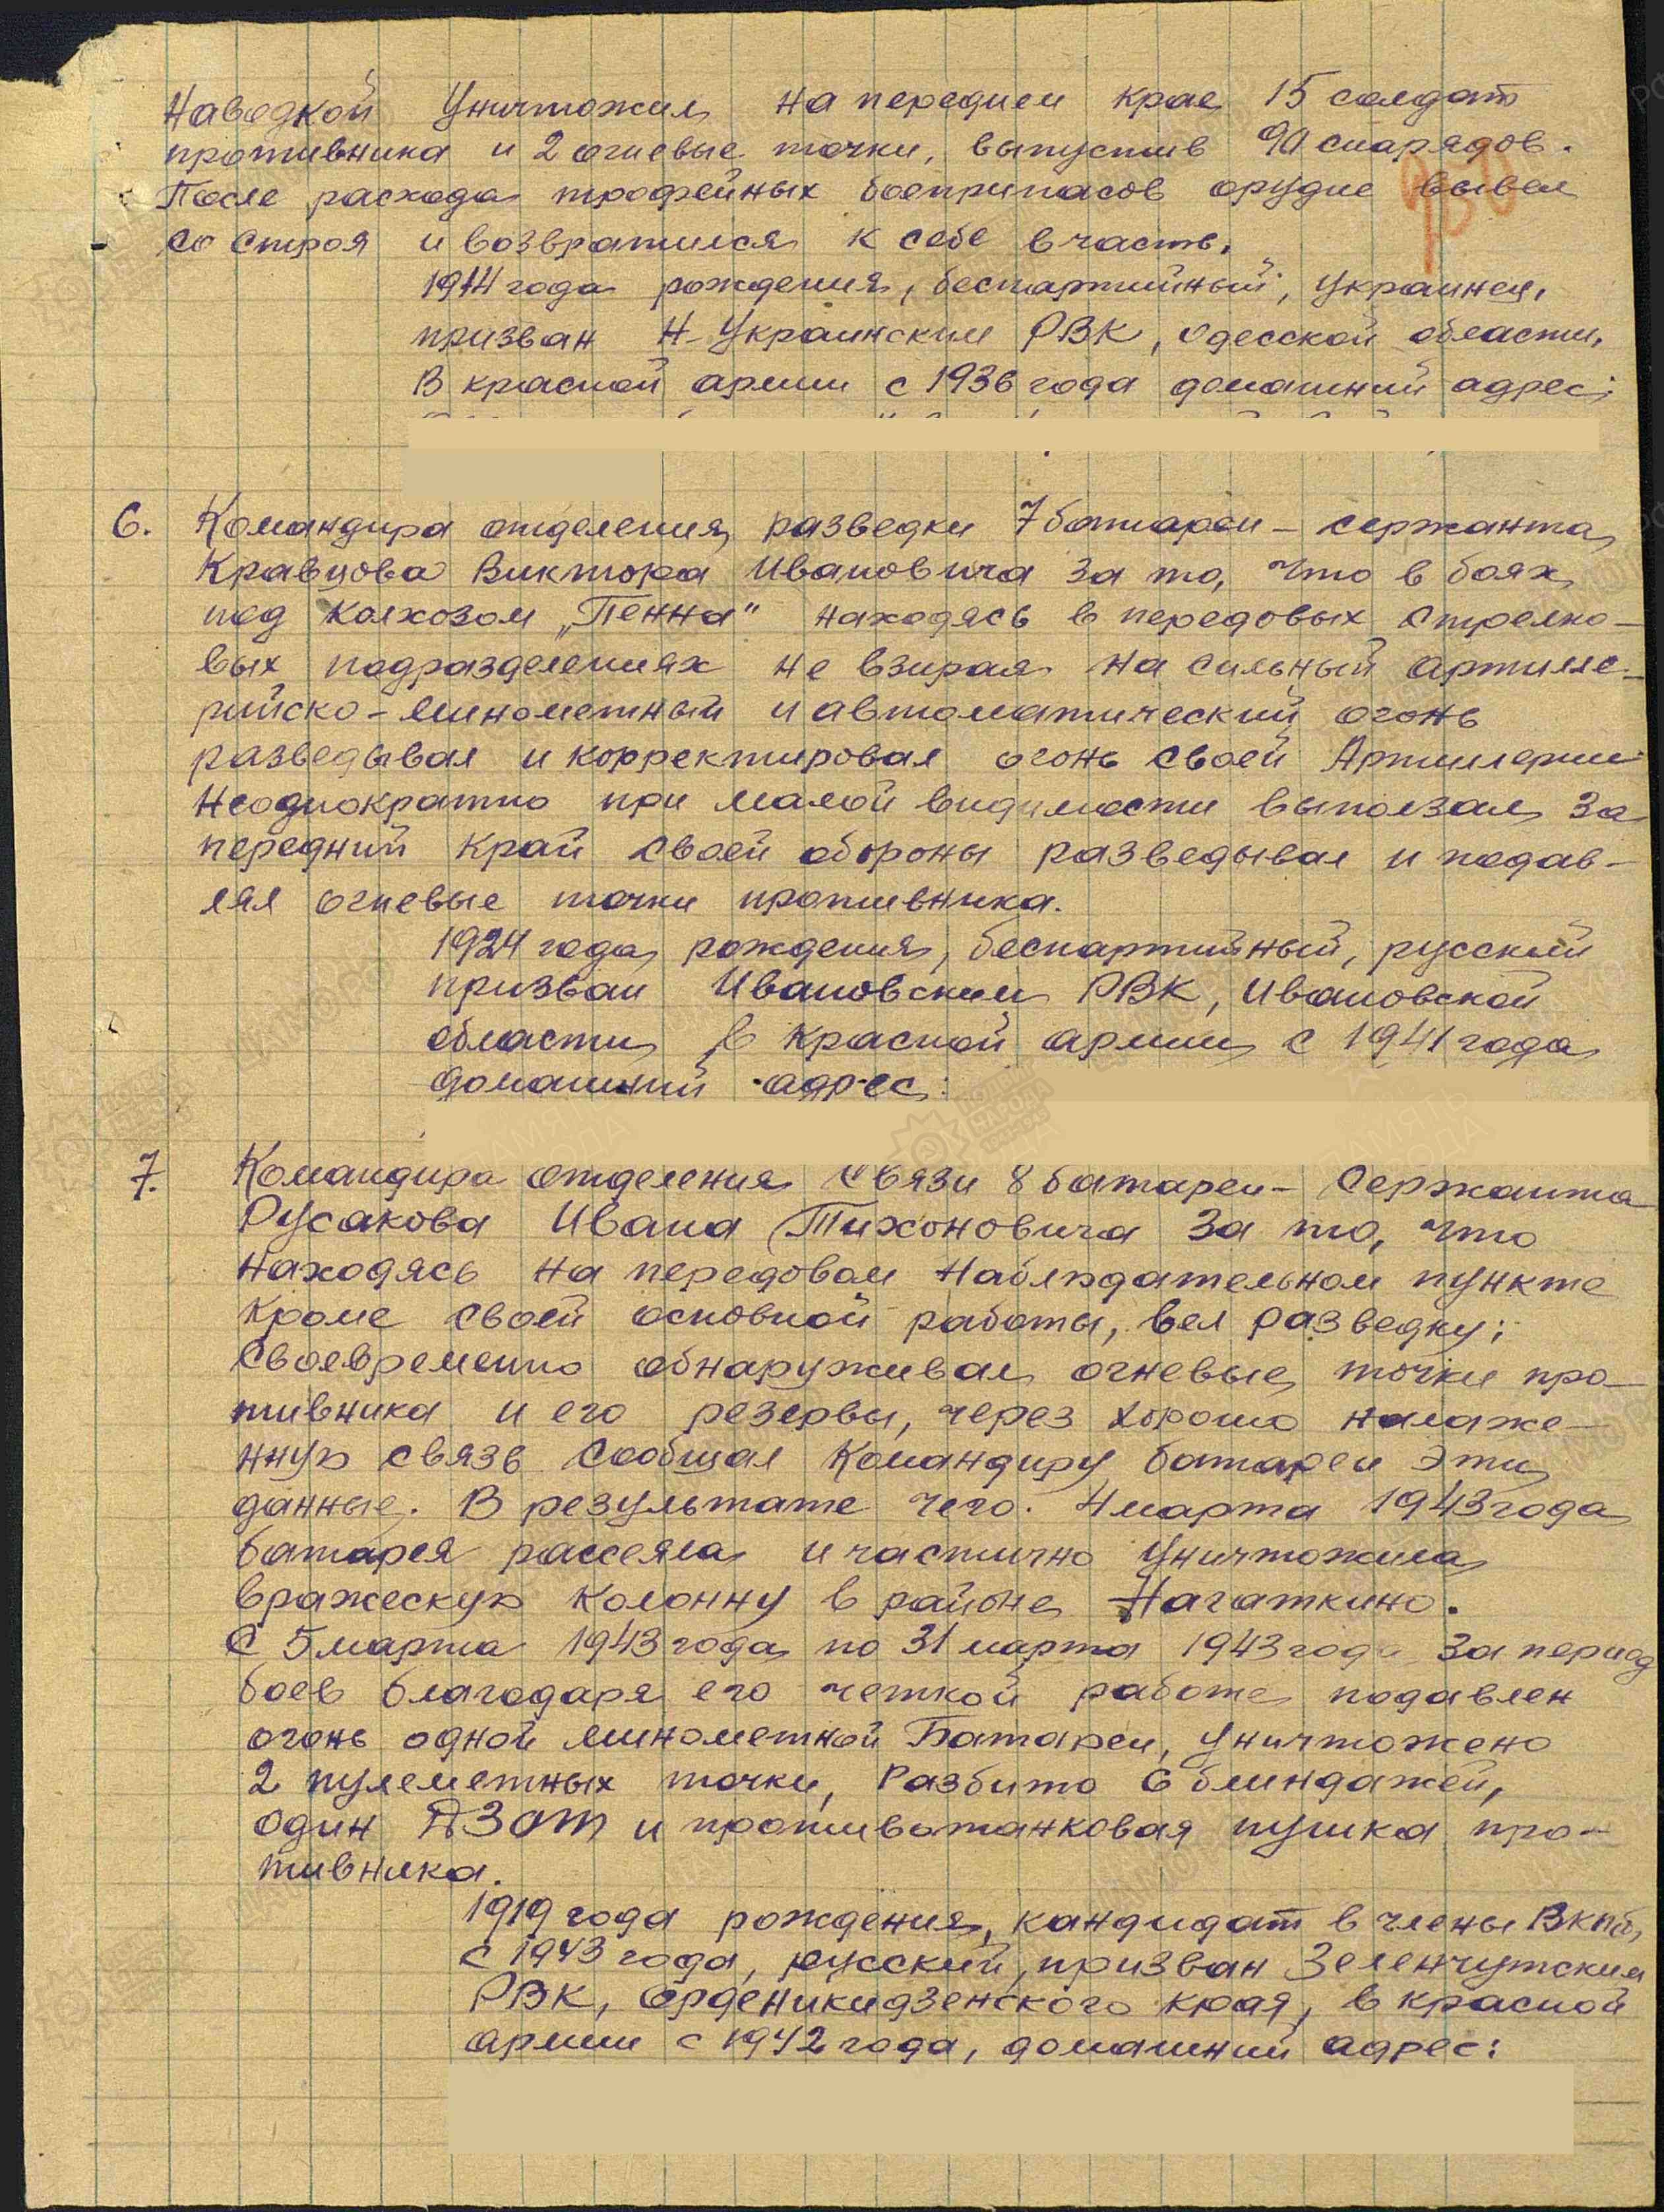 наводкой уничтожил на переднем крае 15 солдат
противника и 2 огневые точки, выпустив 90 снарядов.
После расхода трофейных боеприпасов орудие вывел
со строя и возвратился к себе в часть.
1914 года рождения, беспартийный, украинец,
призван Н-Украинским РВК, Одесской области,
В красной армии с 1936 года домашний адрес:
6. Командира отделения разведки 7 батареи - сержанта
Кравцова Виктора Ивановича за то, что в боях
под колхозом „Пенна" находясь в передовых стрелко-
вых подразделениях не взирая на сильный артилле-
рийско-минометный и автоматический огонь
разведывал и корректировал огонь своей Артиллерии
Неоднократно при малой видимости выползал за
передний край своей обороны разведывал и подав-
лял огневые точки противника.
1924 года рождения, беспартийный, русский
призван Ивановским РВК, Ивановской
области в красной армии с 1941 года
домашний адрес:
7. Командира отделения связи 8 батареи - Сержанта
Русакова Ивана Тихоновича за то, что
находясь на передовом наблюдательном пункте
кроме своей основной работы, вел разведку;
Своевременно обнаруживал огневые точки про-
тивника и его резервы, через хорошо налаже-
нную связь сообщал командиру батареи эти
данные. В результате чего. 4 марта 1943 года
батарея рассеяла и частично уничтожила
вражескую колонну в районе Нагаткино.
С 5 марта 1943 года по 31 марта 1943 года за период
боев благодаря его четкой работе подавлен
огонь одной минометной Батареи, уничтожено
2 пулеметных точки, разбито 6 блиндажей,
один ДЗОТ и противотанковая пушка про-
тивника.
1919 года рождения, кандидат в члены ВКПб,
с 1943 года, русский, призван Зеленчутским
РВК, Орденикидзенского края, в красной
армии с 1942 года, домашний адрес: